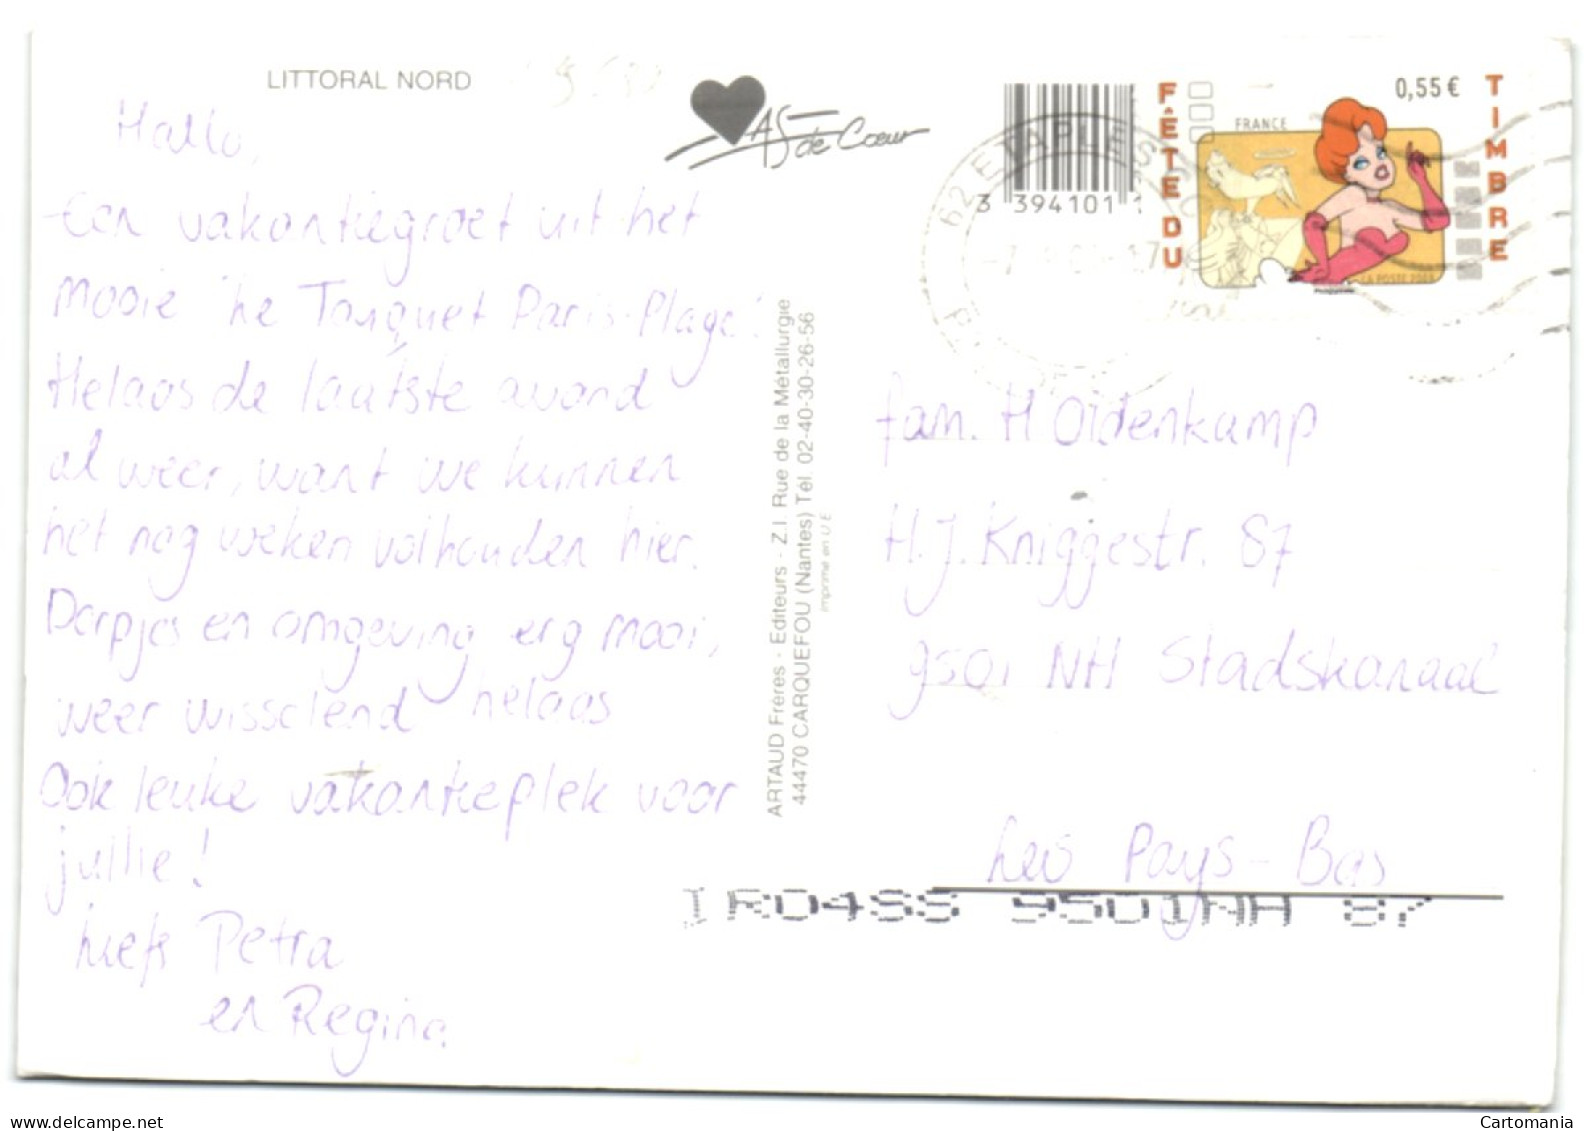 LITTORAL NORD
AS de Cœur
62 ETAPLES
3 394101 1
FÊTE DU
TIMBRE
0,55 €
FRANCE
LA POSTE
Hallo,
Een vakantiegroet uit het
mooie 'he Touquet Paris-Plage'.
Helaas de laatste avond
al weer, want we kunnen
het nog weken volhouden hier.
Dorpjes en omgeving erg mooi,
weer wisselend helaas
Ook leuke vakantieplek voor
jullie!
liefs Petra
en Regina
ARTAUD Frères - Editeurs - Z.I. Rue de la Métallurgie
44470 CARQUEFOU (Nantes) Tél. 02-40-30-26-56
Imprimé en U.E
fam. H Oldenkamp
H.J. Kniggestr. 87
9501 NH Stadskanaal
Les Pays-Bas
9501NH 87
Cartomania
www.delcampe.net